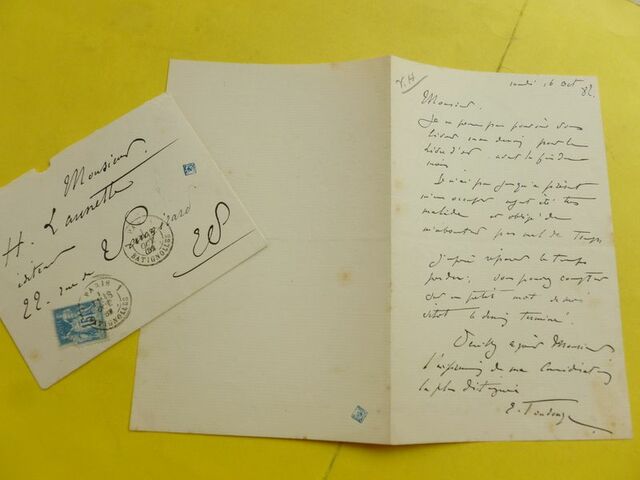 Monsieur
H. Launette
éditeur
22. rue de
PARIS 1
BATIGNOLLES
BATIGNOLLES
V.H
lundi 16 Oct
82.
Monsieur.
Je ne pense pas pouvoir vous
livrer mon dessin pour le
livre d'or avant la fin du
mois
Je n'ai pas jusqu'à présent
m'en occuper ayant été très
malade et obligé de
m'absenter pas mal de temps
J'espère réparer le temps
perdu; vous pouvez compter
sur un petit mot de moi
sitôt le dessin terminé.
Veuillez agréer Monsieur
l'expression de ma considération
la plus distinguée
E. Toudouze